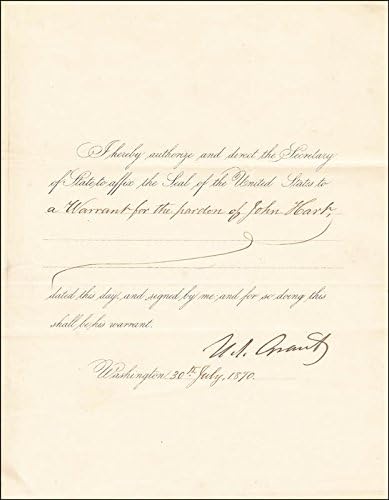 I hereby authorize and direct the Secretary
of State, to affix the Seal of the United States to
a Warrant for the pardon of John Hart,
dated this day, and signed by me, and for so doing this
shall be his warrant.
U.S. Grant
Washington, 30th July, 1870.